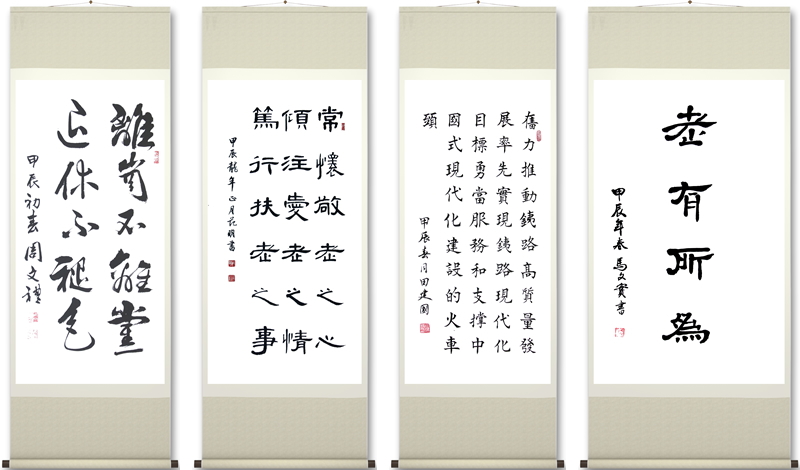 離崗不離黨
退休不褪色
甲辰初春周文禮
常懷敬老之心
傾注愛老之情
篤行扶老之事
甲辰龍年正月范明書
奮力推動銕路高質量發
展率先實現銕路現代化
目標勇當服務和支撐中
國式現代化建設的火車
頭
甲辰春月田建國
老有所為
甲辰年春馬文實書